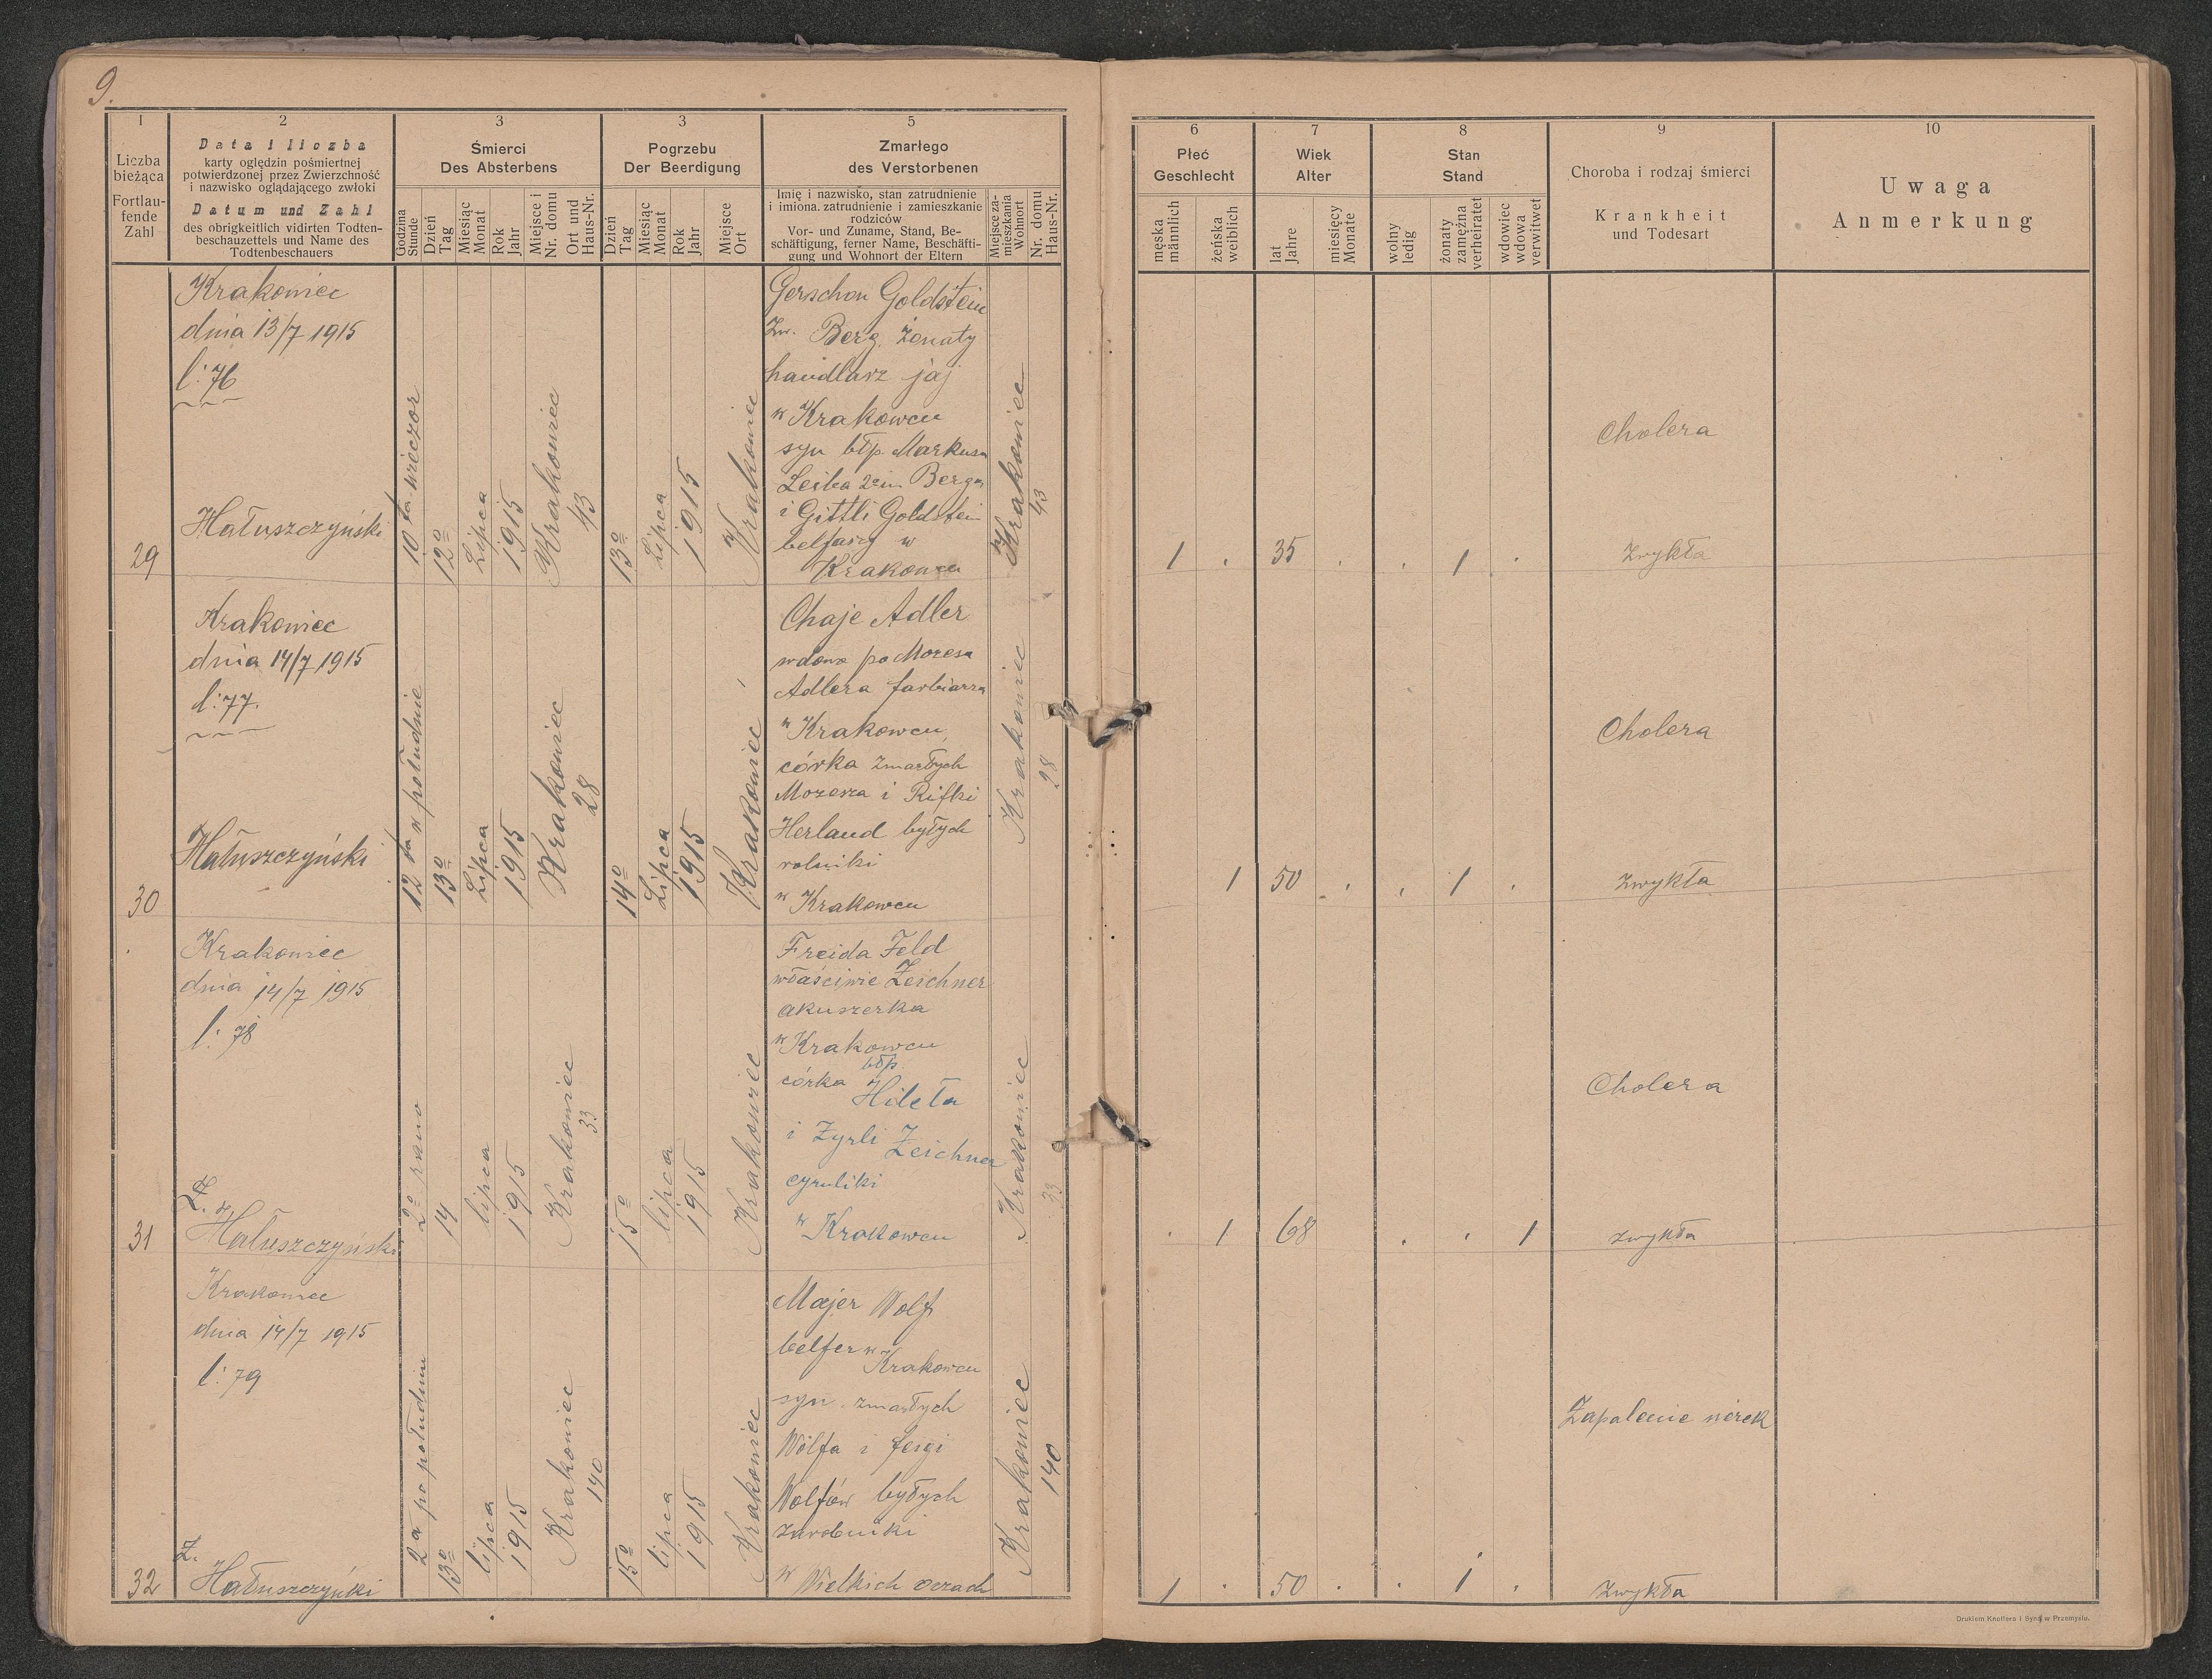 9.
1
Liczba
bieżąca
Fortlau-
fende
Zahl
2
Data i liczba
karty oględzin pośmiertnej
potwierdzonej przez Zwierzchność
i nazwisko oglądającego zwłoki
Datum und Zahl
des obrigkeitlich vidirten Todten-
beschauzettels und Name des
Todtenbeschauers
3
Śmierci
Des Absterbens
Godzina
Stunde
Dzień
Tag
Miesiąc
Monat
Rok
Jahr
Miejsce i
Nr. domu
Ort und
Haus-Nr.
3
Pogrzebu
Der Beerdigung
Dzień
Tag
Miesiąc
Monat
Rok
Jahr
Miejsce
Ort
5
Zmarłego
des Verstorbenen
Imię i nazwisko, stan zatrudnienie
i imiona. zatrudnienie i zamieszkanie
rodziców
Vor- und Zuname, Stand, Be-
schäftigung, ferner Name, Beschäfti-
gung und Wohnort der Eltern
Miejsce za-
mieszkania
Wohnort
Nr. domu
Haus-Nr.
6
Płeć
Geschlecht
męska
männlich
żeńska
weiblich
7
Wiek
Alter
lat
Jahre
miesięcy
Monate
8
Stan
Stand
wolny
ledig
żonaty
zamężna
verheiratet
wdowiec
wdowa
verwitwet
9
Choroba i rodzaj śmierci
Krankheit
und Todesart
10
Uwaga
Anmerkung
29
Krakowiec
dnia 13/7 1915
l: 76
Hałuszczyński
10 ta wieczor
12o
Lipca
1915
Krakowiec
43
13o
Lipca
1915
Krakowiec
Gerschon Goldstein
zw. Berg. żonaty
handlarz jaj
w Krakowcu
syn błp. Markusa
Leiba 2im. Berga
i Gittli Goldstein
belfarzy w
Krakowcu
w Krakowiec
43
1 . 35 . . 1 .
Cholera
zwykła
30
Krakowiec
dnia 14/7 1915
l: 77.
Hałuszczyński
12 ta w południe
13o
Lipca
1915
Krakowiec
28
14o
Lipca
1915
Krakowiec
Chaje Adler
wdowa po Mozesa
Adlera farbiarza
w Krakowcu,
córka zmarłych
Mozesza i Rifki
Herland byłych
rolniki
w Krakowcu
Krakowiec
28
1 50 . . 1 .
Cholera
zwykła
31
Krakowiec
dnia 14/7 1915
l: 78
Hałuszczyński
2o rano
14
lipca
1915
Krakowiec
33
15o
lipca
1915
Krakowiec
Freida Feld
właściwie Zeichner
akuszerka
w Krakowcu
błp
córka Hileła
i Zyrli Zeichner
cyruliki
w Krakowcu
Krakowiec
33
. 1 68 . . 1
Cholera
zwykła
32
Krakowiec
dnia 14/7 1915
l: 79
Z.
Hałuszczyński
2a po południu
13o
lipca
1915
Krakowiec
140
15o
lipca
1915
Krakowiec
Majer Wolf
belfer w Krakowcu
syn zmarłych
Wolfa i feigi
Wolfów byłych
zarobniki
w Wielkich oczach
Krakowiec
140
1 . 50 . . 1 .
Zapalenie nerek
zwykła
Drukiem Knollera i Syna w Przemyślu.